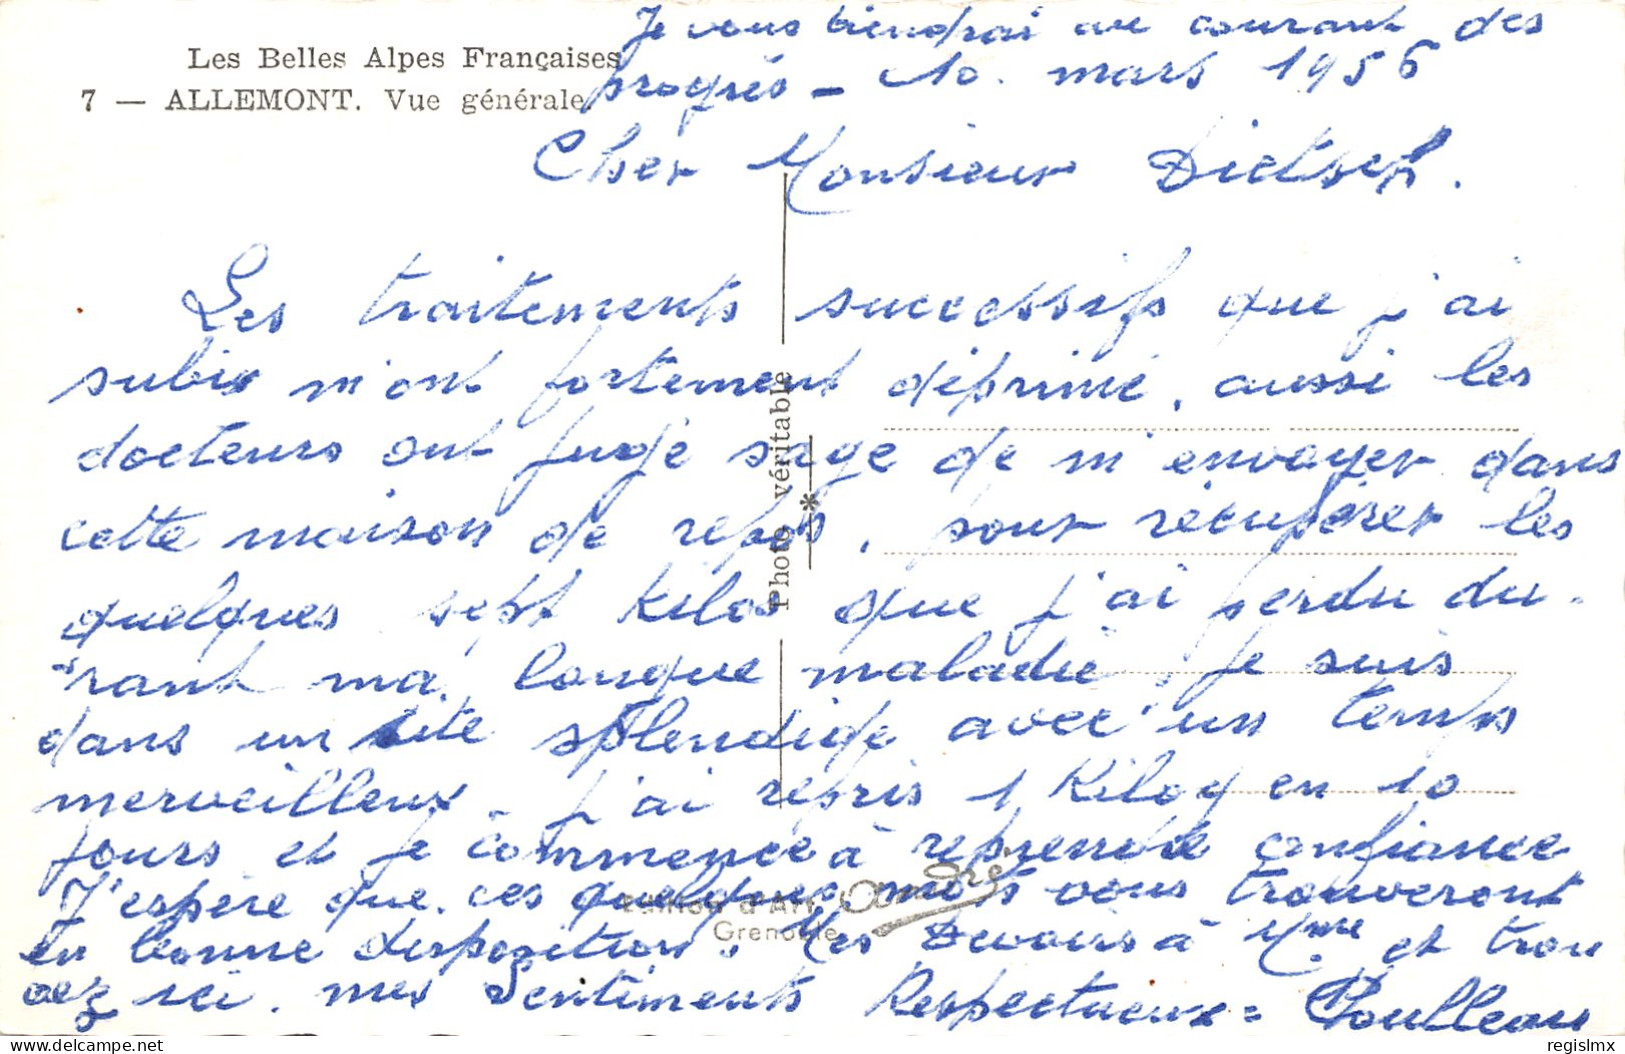 Les Belles Alpes Françaises
7 — ALLEMONT. Vue générale.
Je vous tiendrai au courant des
progrès — 10. mars 1956
Cher Monsieur Dietsch.
Les traitements successifs que j'ai
subis m'ont fortement déprimé, aussi les
docteurs ont jugé sage de m'envoyer dans
cette maison de repos, pour récupérer les
quelques sept kilos que j'ai perdu du-
rant ma longue maladie, je suis
dans un site splendide avec un temps
merveilleux. j'ai repris 1 Kilog en 10
jours et je commence à reprendre confiance
J'espère que ces quelques mots vous trouveront
en bonne disposition. Mes Devoirs à Mme et trou
vez ici. mes Sentiments Respectueux =
Photo véritable
*
Edition d'Art André
Grenoble
regislmx
delcampe.net